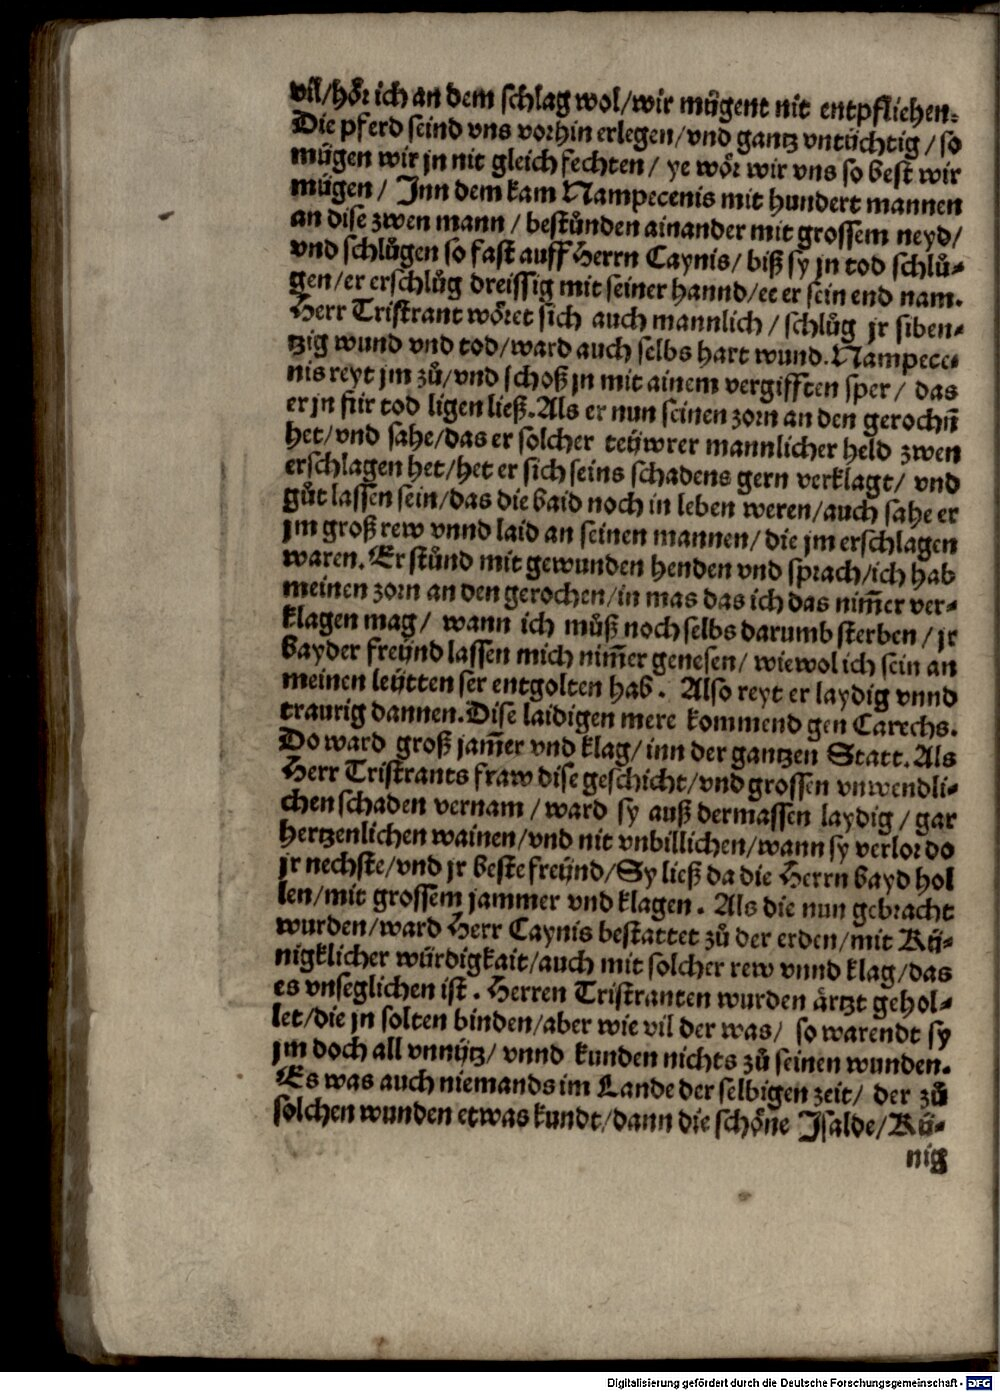 vil/hoͤr ich an dem schlag wol/wir muͤgent nit entpfliehen.
Die pferd seind vns vorhin erlegen/vnd gantz vntüchtig/so
muͤgen wir jn nit gleich fechten/ ye woͤr wir vns so best wir
muͤgen/ Inn dem kam Nampecenis mit hundert mannen
an dise zwen mann/ bestuͦnden ainander mit grossem neyd/
vnd schluͦgen so fast auff Herrn Caynis/ biß sy jn tod schluͦ-
gen/er erschluͦg dreissig mit seiner hannd/ee er sein end nam.
Herr Tristrant woͤret sich auch mannlich/ schluͦg jr siben-
tzig wund vnd tod/ward auch selbs hart wund. Nampece-
nis reyt jm zuͦ/vnd schoß jn mit ainem vergifften sper/ das
er jn für tod ligen ließ. Als er nun seinen zorn an den gerochn̄
het/vnd sahe/das er solcher teüwrer mannlicher held zwen
erschlagen het/het er sich seins schadens gern verklagt/ vnd
guͦt lassen sein/das die baid noch in leben weren/auch sahe er
jm groß rew vnnd laid an seinen mannen/ die jm erschlagen
waren. Er stuͦnd mit gewunden henden vnd sprach/ich hab
meinen zorn an den gerochen/in mas das ich das nim̄er ver-
klagen mag/ wann ich muͦß noch selbs darumb sterben/ jr
bayder freünd lassen mich nim̄er genesen/ wiewol ich sein an
meinen leütten ser entgolten hab. Also reyt er laydig vnnd
traurig dannen. Dise laidigen mere kommend gen Carechs.
Do ward groß jam̄er vnd klag/ inn der gantzen Statt. Als
Herr Tristrants fraw dise geschicht/vnd grossen vnwendli-
chen schaden vernam/ ward sy auß dermassen laydig/ gar
hertzenlichen wainen/vnd nit vnbillichen/wann sy verlor do
jr nechste/vnd jr beste freünd/Sy ließ da die Herrn bayd hol
len/mit grossem jammer vnd klagen. Als die nun gebracht
wurden/ward Herr Caynis bestattet zuͦ der erden/mit Kü-
nigklicher würdigkait/auch mit solcher rew vnnd klag/das
es vnseglichen ist. Herren Tristranten wurden aͤrtzt gehol-
let/die jn solten binden/aber wie vil der was/ so warendt sy
jm doch all vnnütz/ vnnd kunden nichts zuͦ seinen wunden.
Es was auch niemands im Lande der selbigen zeit/ der zuͦ
solchen wunden etwas kundt/dann die schoͤne Isalde/Kü-
nig
Digitalisierung gefördert durch die Deutsche Forschungsgemeinschaft - DFG